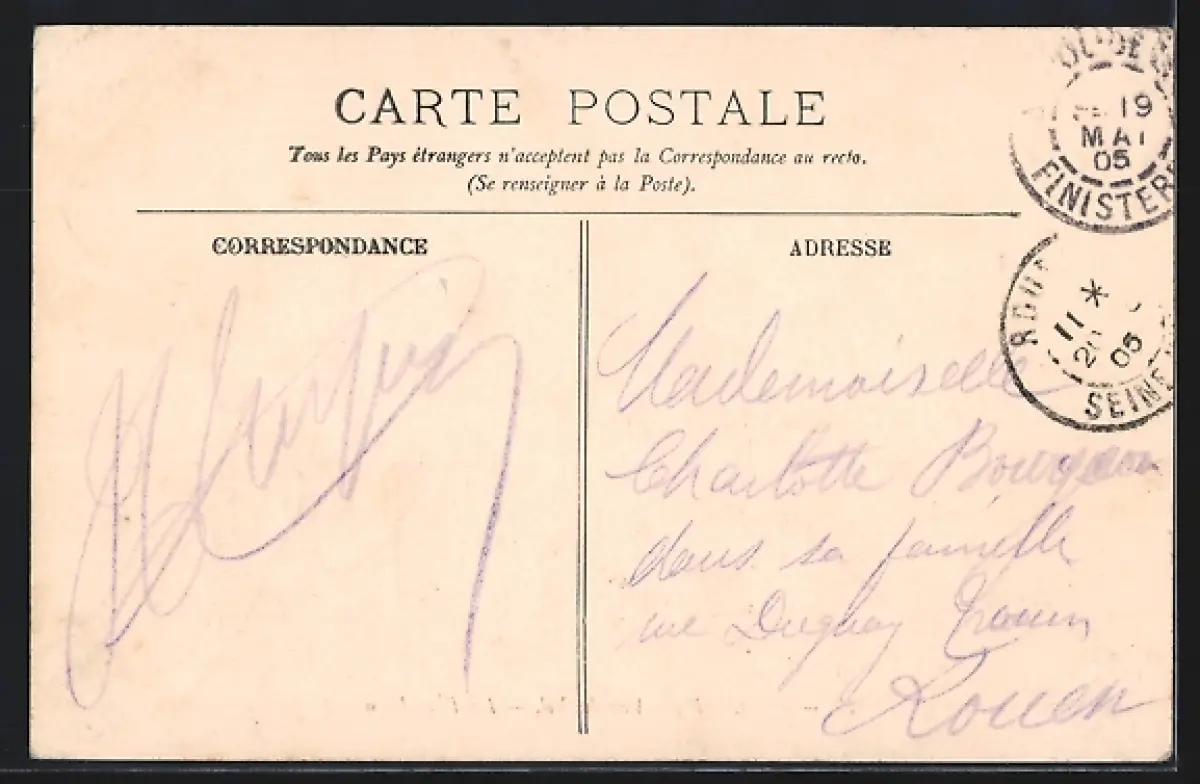 CARTE POSTALE
Tous les Pays étrangers n'acceptent pas la Correspondance au recto.
(Se renseigner à la Poste).
CORRESPONDANCE
ADRESSE
19
MAI
05
FINISTERE
*
11
20
05
SEINE
Mademoiselle
Charlotte
dans sa famille
rue Duguay Trouin
Rouen